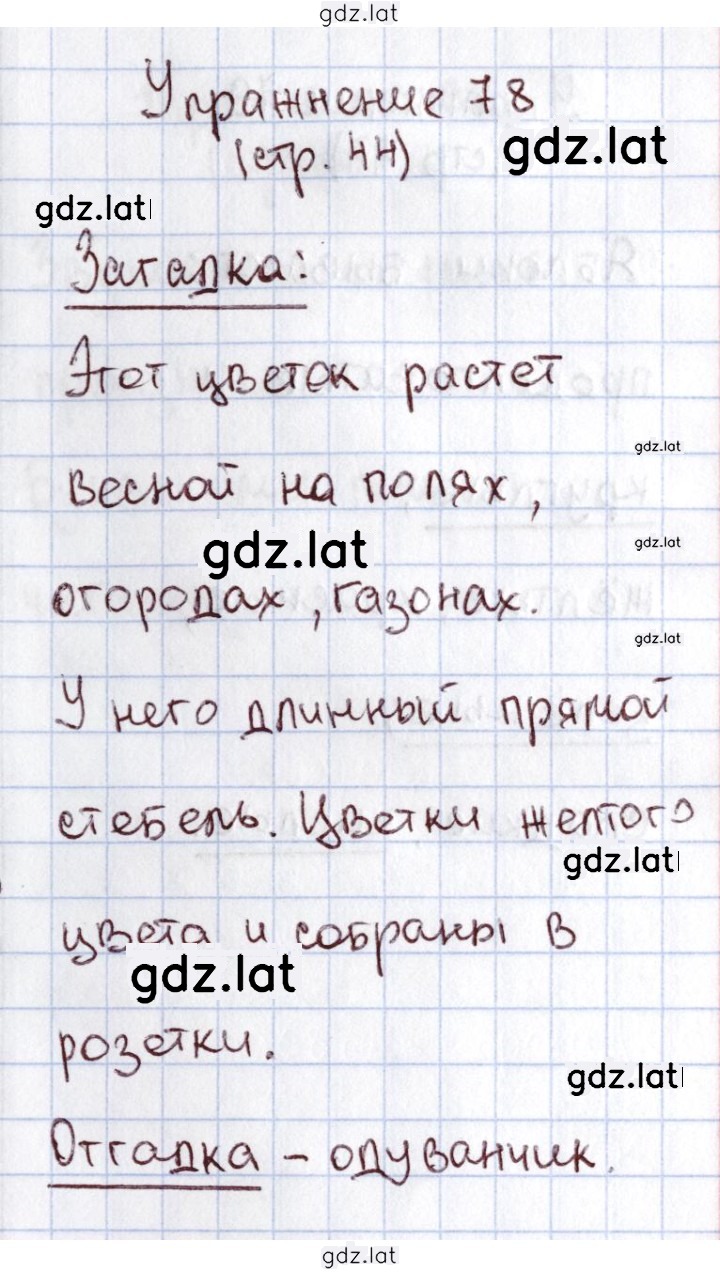 gdz.lat
Упражнение 78
(стр. 44)
gdz.lat
gdz.lat
Загадка:
Этот цветок растет
gdz.lat
весной на полях,
gdz.lat
gdz.lat
огородах, газонах.
gdz.lat
У него длинный прямой
стебель. Цветки желтого
gdz.lat
цвета и собраны в
gdz.lat
розетки.
gdz.lat
Отгадка – одуванчик.
gdz.lat